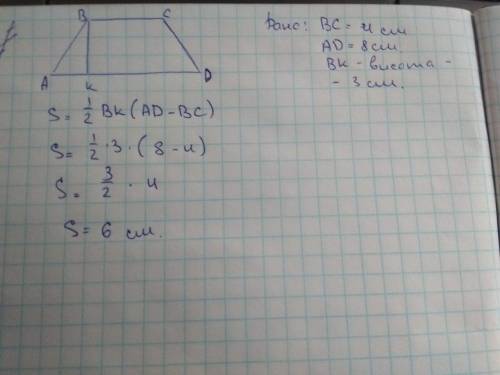 B C
A K D
Дано: BC = 4 см
AD = 8 см
BK - высота -
- 3 см.
S = 1/2 BK (AD - BC)
S = 1/2 · 3 · (8 - 4)
S = 3/2 · 4
S = 6 см.